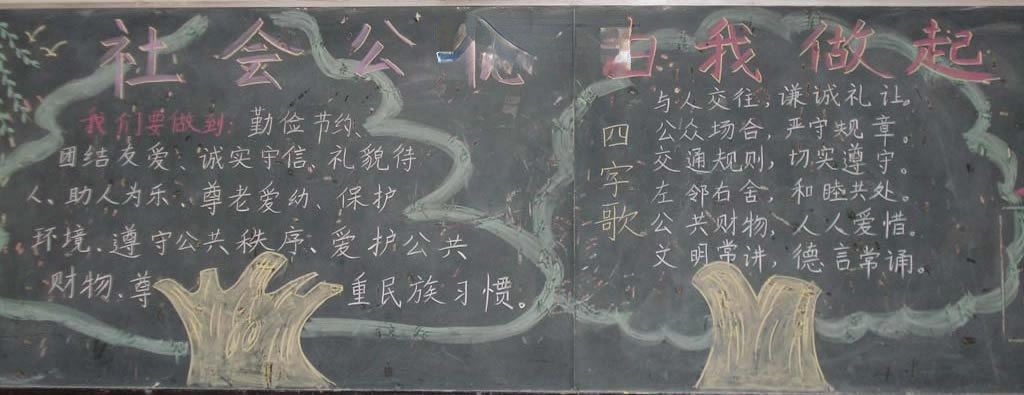 社会公德 由我做起
我们要做到：勤俭节约、
团结友爱、诚实守信、礼貌待
人、助人为乐、尊老爱幼、保护
环境、遵守公共秩序、爱护公共
财物、尊重民族习惯。
四字歌
与人交往，谦诚礼让。
公众场合，严守规章。
交通规则，切实遵守。
左邻右舍，和睦共处。
公共财物，人人爱惜。
文明常讲，德言常诵。